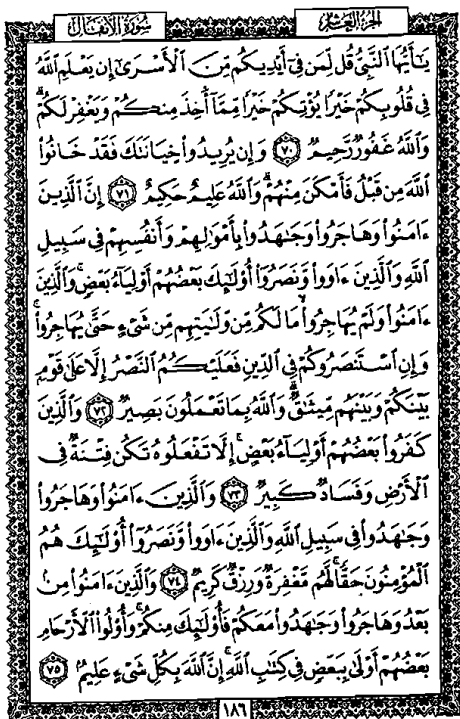 الجزء العاشر
سورة الأنفال
يَـٰٓأَيُّهَا ٱلنَّبِىُّ قُل لِّمَن فِىٓ أَيْدِيكُم مِّنَ ٱلْأَسْرَىٰٓ إِن يَعْلَمِ ٱللَّهُ
فِى قُلُوبِكُمْ خَيْرًا يُؤْتِكُمْ خَيْرًا مِّمَّآ أُخِذَ مِنكُمْ وَيَغْفِرْ لَكُمْ ۗ
وَٱللَّهُ غَفُورٌ رَّحِيمٌ ٧٠ وَإِن يُرِيدُوا۟ خِيَانَتَكَ فَقَدْ خَانُوا۟
ٱللَّهَ مِن قَبْلُ فَأَمْكَنَ مِنْهُمْ ۗ وَٱللَّهُ عَلِيمٌ حَكِيمٌ ٧١ إِنَّ ٱلَّذِينَ
ءَامَنُوا۟ وَهَاجَرُوا۟ وَجَـٰهَدُوا۟ بِأَمْوَٰلِهِمْ وَأَنفُسِهِمْ فِى سَبِيلِ
ٱللَّهِ وَٱلَّذِينَ ءَاوَوا۟ وَّنَصَرُوٓا۟ أُو۟لَـٰٓئِكَ بَعْضُهُمْ أَوْلِيَآءُ بَعْضٍ ۚ وَٱلَّذِينَ
ءَامَنُوا۟ وَلَمْ يُهَاجِرُوا۟ مَا لَكُم مِّن وَلَـٰيَتِهِم مِّن شَىْءٍ حَتَّىٰ يُهَاجِرُوا۟ ۚ
وَإِنِ ٱسْتَنصَرُوكُمْ فِى ٱلدِّينِ فَعَلَيْكُمُ ٱلنَّصْرُ إِلَّا عَلَىٰ قَوْمٍۭ
بَيْنَكُمْ وَبَيْنَهُم مِّيثَـٰقٌ ۗ وَٱللَّهُ بِمَا تَعْمَلُونَ بَصِيرٌ ٧٢ وَٱلَّذِينَ
كَفَرُوا۟ بَعْضُهُمْ أَوْلِيَآءُ بَعْضٍ ۚ إِلَّا تَفْعَلُوهُ تَكُن فِتْنَةٌ فِى
ٱلْأَرْضِ وَفَسَادٌ كَبِيرٌ ٧٣ وَٱلَّذِينَ ءَامَنُوا۟ وَهَاجَرُوا۟
وَجَـٰهَدُوا۟ فِى سَبِيلِ ٱللَّهِ وَٱلَّذِينَ ءَاوَوا۟ وَّنَصَرُوٓا۟ أُو۟لَـٰٓئِكَ هُمُ
ٱلْمُؤْمِنُونَ حَقًّا ۚ لَّهُم مَّغْفِرَةٌ وَرِزْقٌ كَرِيمٌ ٧٤ وَٱلَّذِينَ ءَامَنُوا۟ مِنۢ
بَعْدُ وَهَاجَرُوا۟ وَجَـٰهَدُوا۟ مَعَكُمْ فَأُو۟لَـٰٓئِكَ مِنكُمْ ۚ وَأُو۟لُوا۟ ٱلْأَرْحَامِ
بَعْضُهُمْ أَوْلَىٰ بِبَعْضٍ فِى كِتَـٰبِ ٱللَّهِ ۗ إِنَّ ٱللَّهَ بِكُلِّ شَىْءٍ عَلِيمٌۢ ٧٥
١٨٦